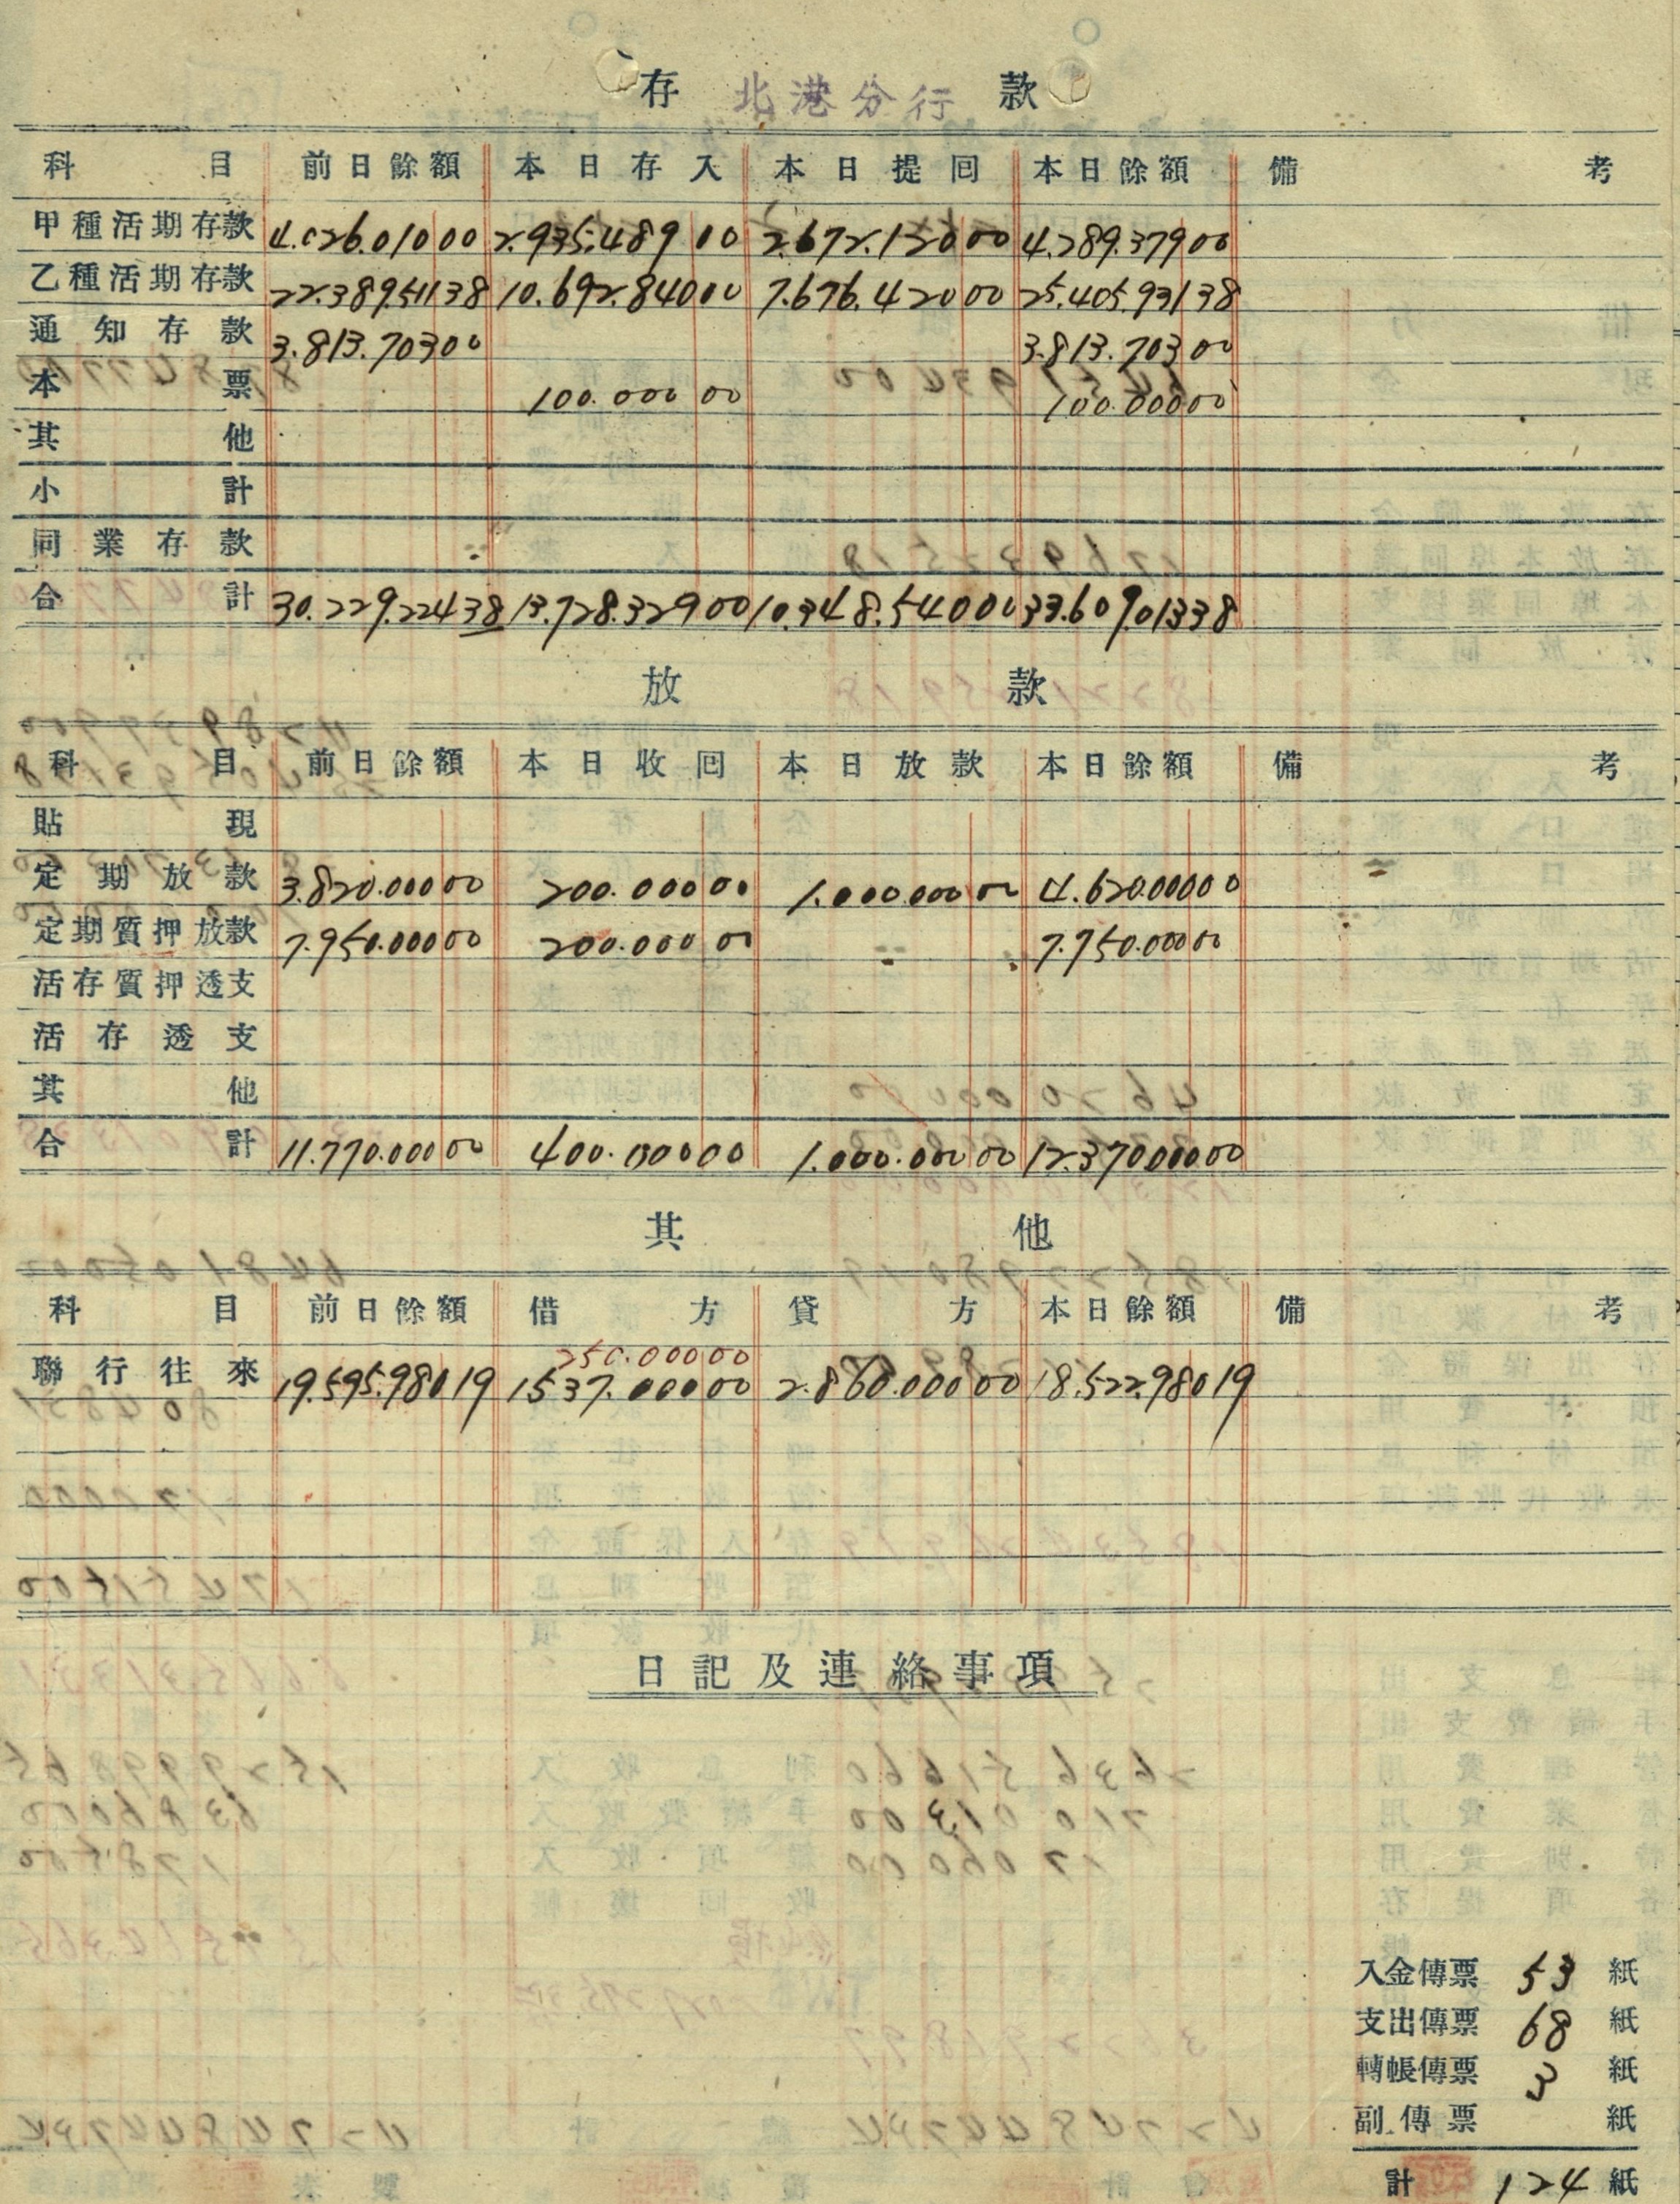 存 北港分行 款
科目 前日餘額 本日存入 本日提囘 本日餘額 備考
甲種活期存款 4.026.010 00 2.935.489 00 2.672.120 00 4.289.379 00
乙種活期存款 22.389.511 38 10.692.840 00 7.676.420 00 25.405.931 38
通知存款 3.813.703 00 3.813.703 00
本票 100.000 00 100.000 00
其他
小計
同業存款
合計 30.229.224 38 13.728.329 00 10.348.540 00 33.609.013 38
放款
科目 前日餘額 本日收囘 本日放款 本日餘額 備考
貼現
定期放款 3.820.000 00 200.000 00 1.000.000 00 4.620.000 00
定期質押放款 7.950.000 00 200.000 00 7.750.000 00
活存質押透支
活存透支
其他
合計 11.770.000 00 400.000 00 1.000.000 00 12.370.000 00
其他
科目 前日餘額 借方 貸方 本日餘額 備考
250.000 00
聯行往來 19.595.980 19 1537.000 00 2.860.000 00 18.522.980 19
日記及連絡事項
入金傳票 53 紙
支出傳票 68 紙
轉帳傳票 3 紙
副傳票 紙
計 124 紙